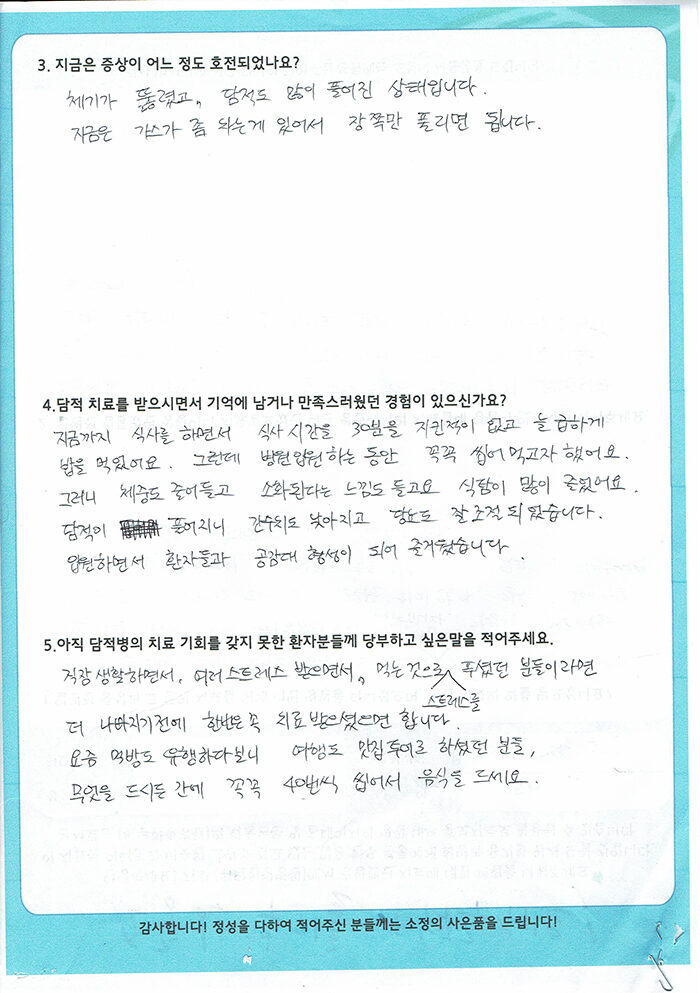 3. 지금은 증상이 어느 정도 호전되었나요?
체기가 뚫렸고, 담적도 많이 풀어진 상태입니다.
지금은 가스가 좀 차는게 있어서 장쪽만 풀리면 됩니다.
4.담적 치료를 받으시면서 기억에 남거나 만족스러웠던 경험이 있으신가요?
지금까지 식사를 하면서 식사시간을 30분을 지킨적이 없고 늘 급하게
밥을 먹었어요. 그런데 병원입원하는 동안 꼭꼭 씹어먹고자 했어요.
그러니 체중도 줄어들고 소화된다는 느낌도 들고요 식탐이 많이 줄었어요.
담적이 풀어지니 간수치도 낮아지고 당뇨도 잘조절 되었습니다.
입원하면서 환자들과 공감대 형성이 되어 즐거웠습니다.
5.아직 담적병의 치료 기회를 갖지 못한 환자분들께 당부하고 싶은말을 적어주세요.
직장생활하면서, 여러스트레스 받으면서, 먹는것으로 스트레스를 푸셨던 분들이라면
더 나빠지기전에 한번은 꼭 치료받으셨으면 합니다.
요즘 먹방도 유행하다보니 여행도 맛집투어로 하셨던 분들,
무엇을 드시든 간에 꼭꼭 40번씩 씹어서 음식을 드세요.
감사합니다! 정성을 다하여 적어주신 분들께는 소정의 사은품을 드립니다!